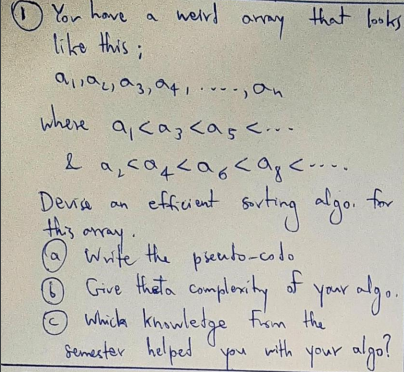 ① You have a weird array that looks
like this;
a₁, a₂, a₃, a₄, ....., aₙ
where a₁ < a₃ < a₅ < ...
& a₂ < a₄ < a₆ < a₈ < ....
Devise an efficient sorting algo. for
this array.
ⓐ Write the pseudo-code
ⓑ Give theta complexity of your algo.
ⓒ Which knowledge from the
semester helped you with your algo?